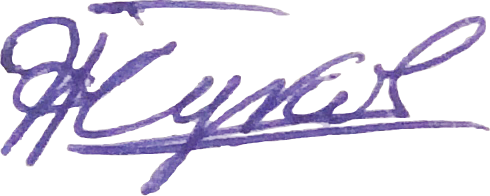 Жуков